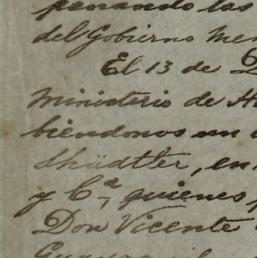 panando las
del Gobierno
El 13 de
Ministerio de
biéndonos un
Shüdtler, en
y Cª, quienes,
Don Vicente